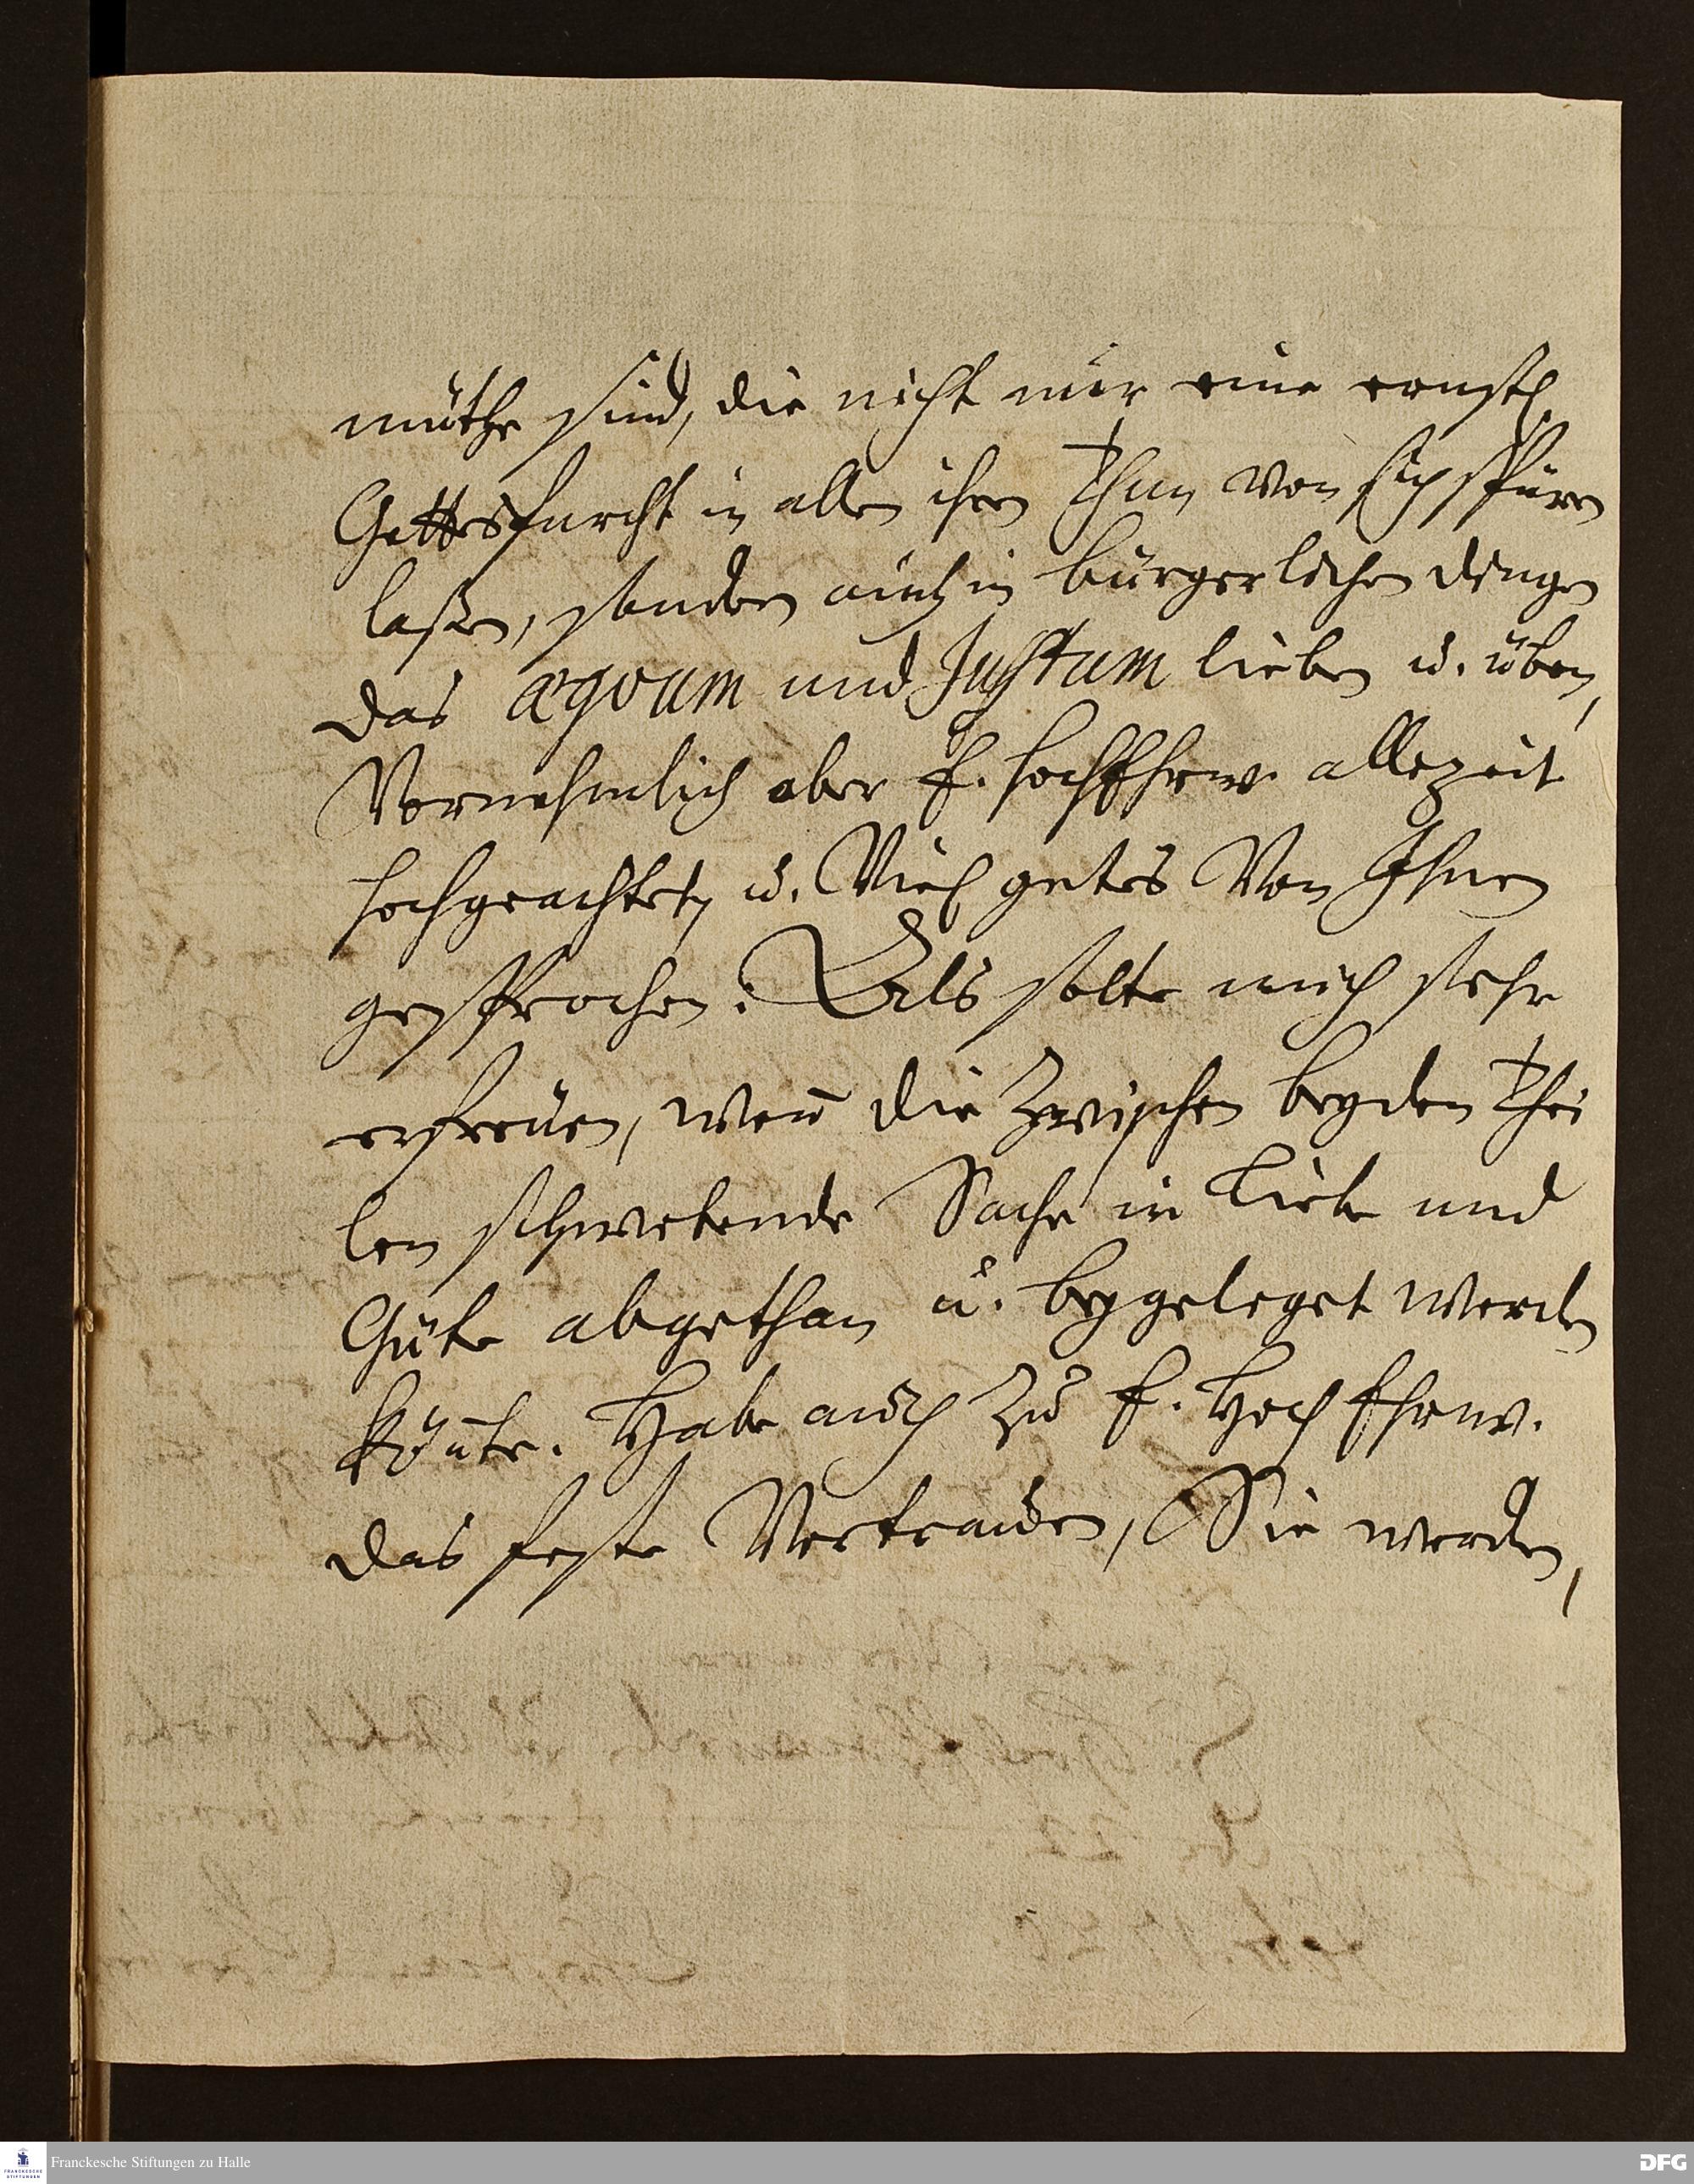 müthe sind, die nicht nur eine ernstl.
Gottesfurcht in allen ihren Thun von sich spüren
laßen, sondern auch in bürgerlichen dingen
das æqvum und Justum lieben u. üben,
Vornehmlich aber E. HochEhrw. allezeit
hochgeachtet, u. Viel gutes Von Ihnen
gesprochen: Als solte mich sehr
erfreuen, wen̄ die Zwischen beyden Thei
len schwebende Sache in Liebe und
Güte abgethan u. beygeleget werden
kön̄te. Habe auch zu E. HochEhrw.
das feste Vertrauen, Sie werden,
Franckesche Stiftungen zu Halle
FRANCKESCHE
STIFTUNGEN
DFG